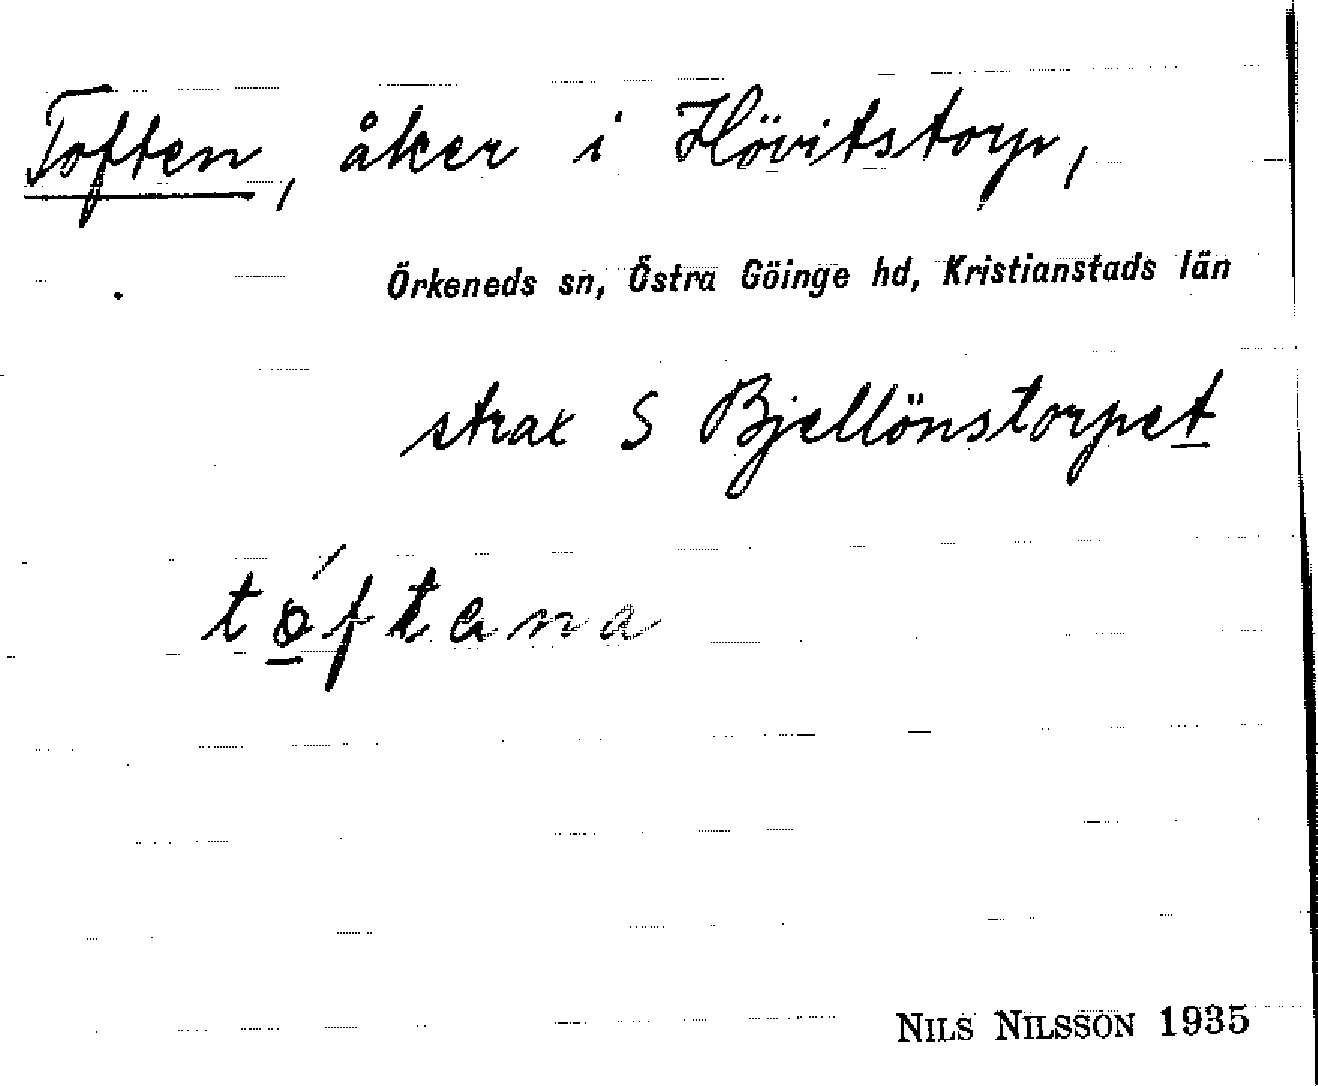 Toften, åker i Hövitstorp,
Örkeneds sn, Östra Göinge hd, Kristianstads län
strax S Bjellönstorpet
to̱ftana
NILS NILSSON 1935